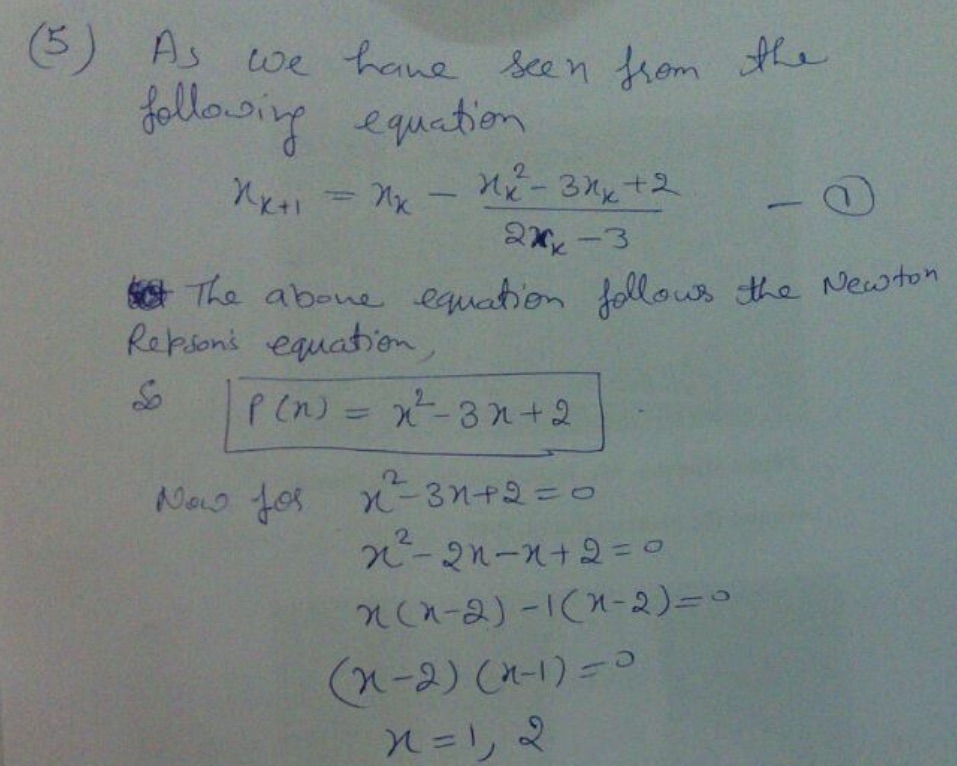 (5) As we have seen from the
following equation
x_{k+1} = x_k - \frac{x_k^2 - 3x_k + 2}{2x_k - 3} - ①
The above equation follows the Newton
Repson's equation,
So P(x) = x^2 - 3x + 2
Now for x^2 - 3x + 2 = 0
x^2 - 2x - x + 2 = 0
x(x-2) - 1(x-2) = 0
(x-2) (x-1) = 0
x = 1, 2